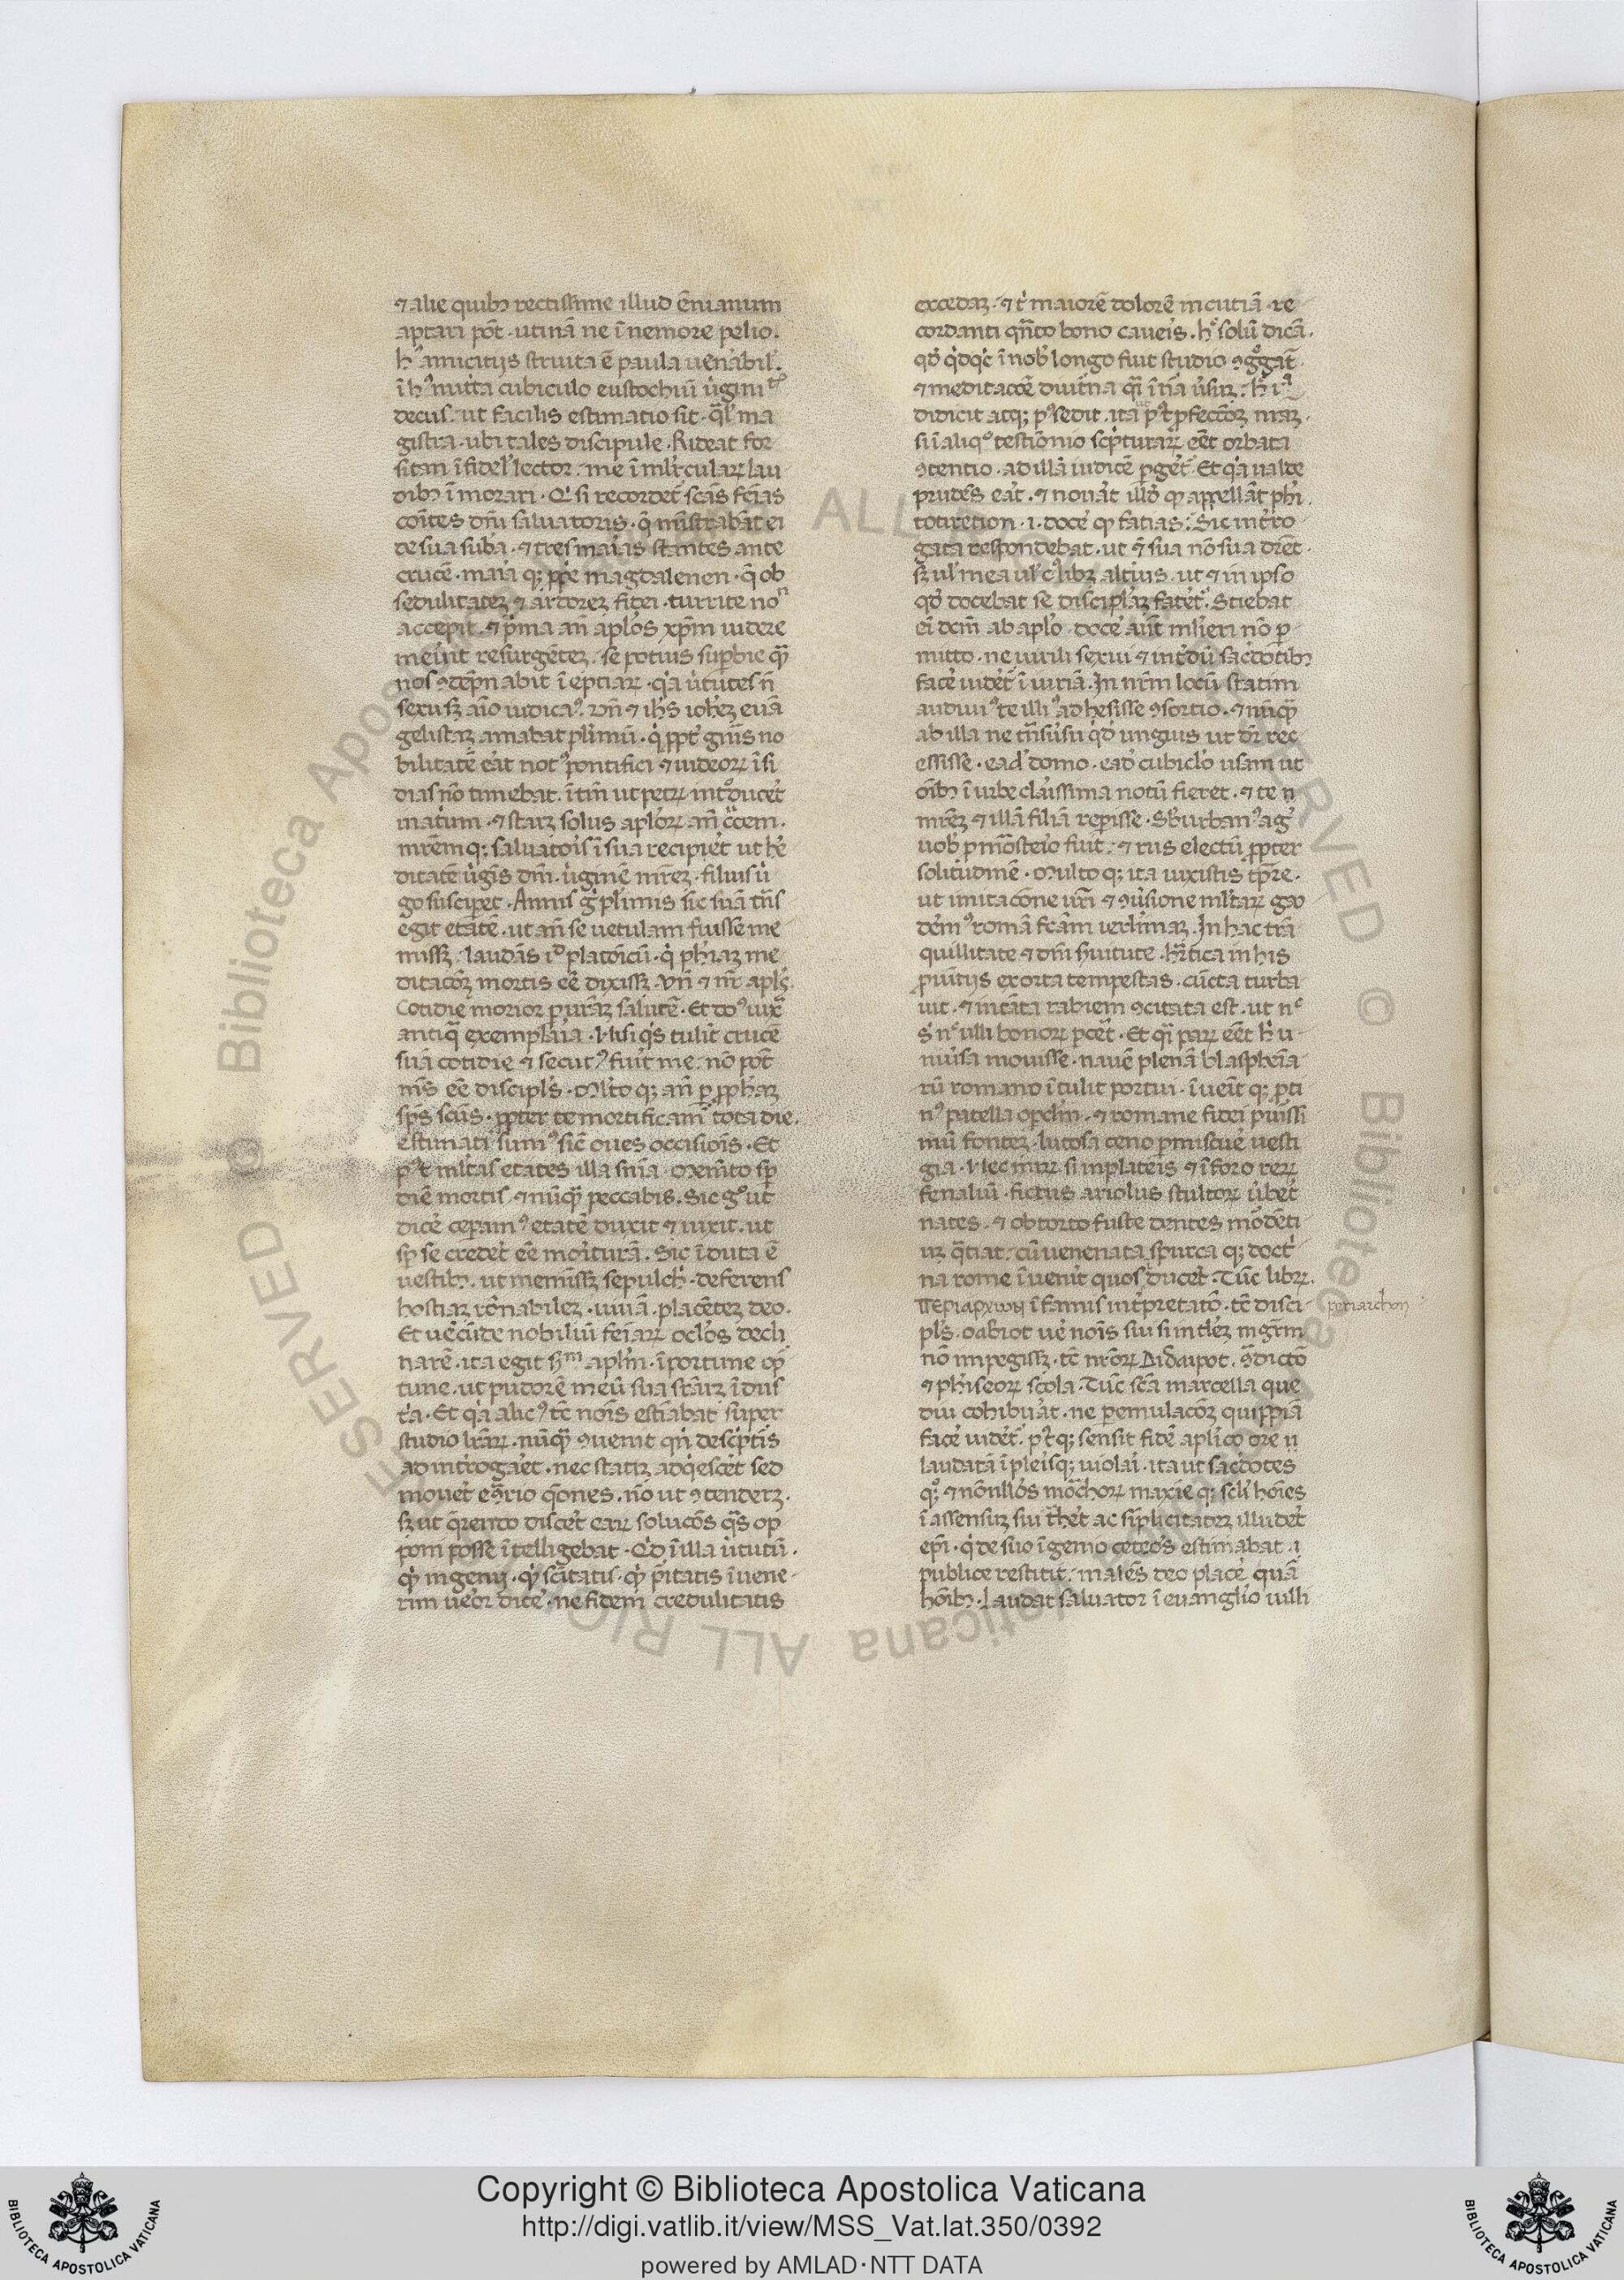 ⁊ alie quibꝫ rectissime illud ēnianum
aptari pōt · utinā ne ī nemore pelio.
amicitijs struita ē paula uenabil'.
nutita cubiculo eustochiū ùginitͦ
decus. ut facilis estimatio sit · q̄l' ma
gistra · ubi tales discipule · Rideat for
sitan īfidel' lector · me ī ml'rcularꝝ lau
dibꝫ īmorari · Q' si recordet' scās fēīas
cōītes dn̄i saluatoris · q̄ mīstrabāt ei
de sua suba · ⁊ tres maīas stantes ante
crucē · maīa qꝫ ꝓpe magdalenen · q̄ ob
sedulitateꝫ ⁊ ardoreꝫ fidei · turrite noͫ
accepit · ⁊ p'ma an̄ aplōs xp̄m uidere
meīut resurgēteꝫ · se potius supbie qꝫ
nos ꝯdēpnabit īeptiarꝝ · q'a ùtutes n̄
sexu sꝫ aīo iudicaꝰ · Vn̄ ⁊ ih̄s ioheꝫ euā
gelistaꝫ amabat pl'imū · q' ꝓpt' gn̄is no
bilitatē eāt notꝰ pontifici ⁊ iudeorꝝ īsi
dias nō timebat · ītm̄ ut petrꝝ int'duceret
inatrium · ⁊ staꝫ solus aplōrꝝ an̄ c'cem.
mr̄em qꝫ saluatoīs ī sua recipiet ut he
ditatē ùgīs dn̄i · ùginē mr̄eꝫ · filius ù
go susciperet · Annis g' pl'imis sic suā tn̄s
egit etātē · ut an̄ se uetulam fuisse me
misꝫ · laudās id' platōicū · q' phiaꝫ me
ditacōꝫ mortis eē dixisꝫ · Vn̄ ⁊ nr̄ apl's.
Cotidie morior p ur̄aꝫ salutē · Et doꝰ iux̄
antiq̄ exemplaīa · Nisi q's tulit crucē
suā cotidie ⁊ secutꝰ fuīt me · nō pōt
m̄s eē discipl's · Ml'to qꝫ an̄ p ꝓphaꝫ
sp̄s sc̄us · ꝓpter te mortificam' tota die.
estimati sumꝰ sic oues occisiōīs · Et
pꝰt ml'tas etates illa sn̄ia · Memīto sp̄
diē mortis · ⁊ nūqꝫ peccabis · Sic gͦ ut
dice cepamꝰ etatē duxit ⁊ uixit · ut
sp̄ se crēdet eē moīturā · Sic īduta ē
uestibꝫ · ut memisꝫ sepulch' · deferens
hostiaꝫ rōnabileꝫ · uiuā · placēteꝫ deo.
narē · ita egit aplīm · īportune op
tune · ut pudorē meū sua īdus
t'a · Et q'a alicꝰ tc̄ nōīs estīabar super
studio · nūqꝫ ꝯuenit qn̄ de sc'ptīs
ad int'rogaret · nec statiꝫ adq'esceret sed
moueret q̄ones · nō ut ꝯtenderꝫ.
sꝫ ut q̄rendo disceret earꝝ solucōs q̄s op
poni posse ītelligebat · Qd' ī illa ùtutū.
qꝫ ingenij · qꝫ scītatis · qꝫ p̄itatis īuene
rim ueor dice · ne fidem credulitatis
excedaꝫ · ⁊ t' maiorē dolorē incutiā · re
cordanti qn̄to bono caueīs · hͦ solū dicā.
qd' q'dq'd ī nob' longo fuit studio ꝯg'gat'
⁊ meditacōē diutīna qīn
didicit atqꝫ pꝰsedit · ita ut pꝰt ꝓfectōꝫ nr̄aꝫ.
si ī aliqͦ testīonio sc'pturarꝝ eēt orbata
ꝯtentio · ad illā iudicē p̱get' · Et q'a ualde
prudēs eāt · ⁊ nouāt illd' qꝫ appellāt ph'i.
totiretion · i · doce qꝫ fatias · Sic int'ro
gata respondebat · ut ⁊ sua nō sua dr̄et.
sꝫ ul' mea ul' c'libꝫ altius · ut ⁊ in ipso
qd' docebat se discipl'aꝫ fatet' · Sciebat
eī dcm̄ ab aplo · doce aūt ml'ieri nō p
mitto · ne uirili sexui ⁊ int'dū sacdotibꝫ
face uidet' īiuriā · In nr̄m locū statim
audiuiꝰ te illiꝰ adhesisse ꝯsortio · ⁊ nūqꝫ
ab illa ne tn̄suersū q'd' unguis ut dr̄ rec
essisse · ead' domo · ead' cubic'lo usam ut
oībꝫ ī urbe claīssima notū fieret · ⁊ te
mr̄eꝫ ⁊ illā filiā reperisse · Sb'urbanꝰ ag'
uob' p mōsteīo fuit · ⁊ rus electū ꝓpter
solitudinē · Multo qꝫ ita uixistis tp̄re.
ut imitacōne ur̄i ⁊ ꝯùsione ml'tarꝝ gau
demꝰ romā fcām ierl'imaꝫ · In hac trā
quillitate ⁊ dn̄i seruitute · h'etica in his
ꝓuīcijs exorta tempestas · cūcta turba
uit · ⁊ in tāta rabiem ꝯcitata est · ut nͨ
s' nͨ ulli bonorꝝ pc̄et · Et qīn parꝝ eēt h' u
niùsa mouisse · nauē plenā blasphēīa
rū romano ītulit portui · īueīt qꝫ p̱ti
nꝰ patella opclm̄ · ⁊ romane fidei purissi
mū fonteꝫ · lutosa ceno p̱miscue uesti
gia · Nec mirꝝ si in plateīs ⁊ ī foro rerꝝ
fenaliū · fictus ariolus stultorꝝ ùberet
nates · ⁊ obtorto fuste dentes mōdēti
uꝫ q̄tiat · cū uenenata spurca qꝫ doct'
na rome īuenit quos duceret · Tūc librꝝ.
περιαρχωη īfamis int'pretatō · tc̄ disci
periarchon
pl's · oabiot ue nōīs sui si in tleꝫ mgr̄m
nō impegisꝫ · tc̄ nr̄orꝝ
⁊ phiseorꝝ scōla · Tūc sc̄a marcella que
diu cohibuāt · ne p emulacōꝫ quippiā
face uidet' · pꝰt qꝫ sensit fidē aplīco ore
laudatā ī pleisqꝫ uiolari · ita ut sacdotes
qͦꝫ ⁊ nōnllōs mōchorꝝ maxīe qꝫ scl'i hōīes
ī assensuꝫ sui t'heret ac sīplicitateꝫ illudet
epī · q' de suo īgenio ceteōs estimabat
publice restitit · malēs deo place quā
hōībꝫ · Laudat saluator ī euangl'io uilli
Copyright © Biblioteca Apostolica Vaticana
http://digi.vatlib.it/view/MSS_Vat.lat.350/0392
powered by AMLAD·NTT DATA
BIBLIOTECA APOSTOLICA VATICANA
BIBLIOTECA APOSTOLICA VATICANA